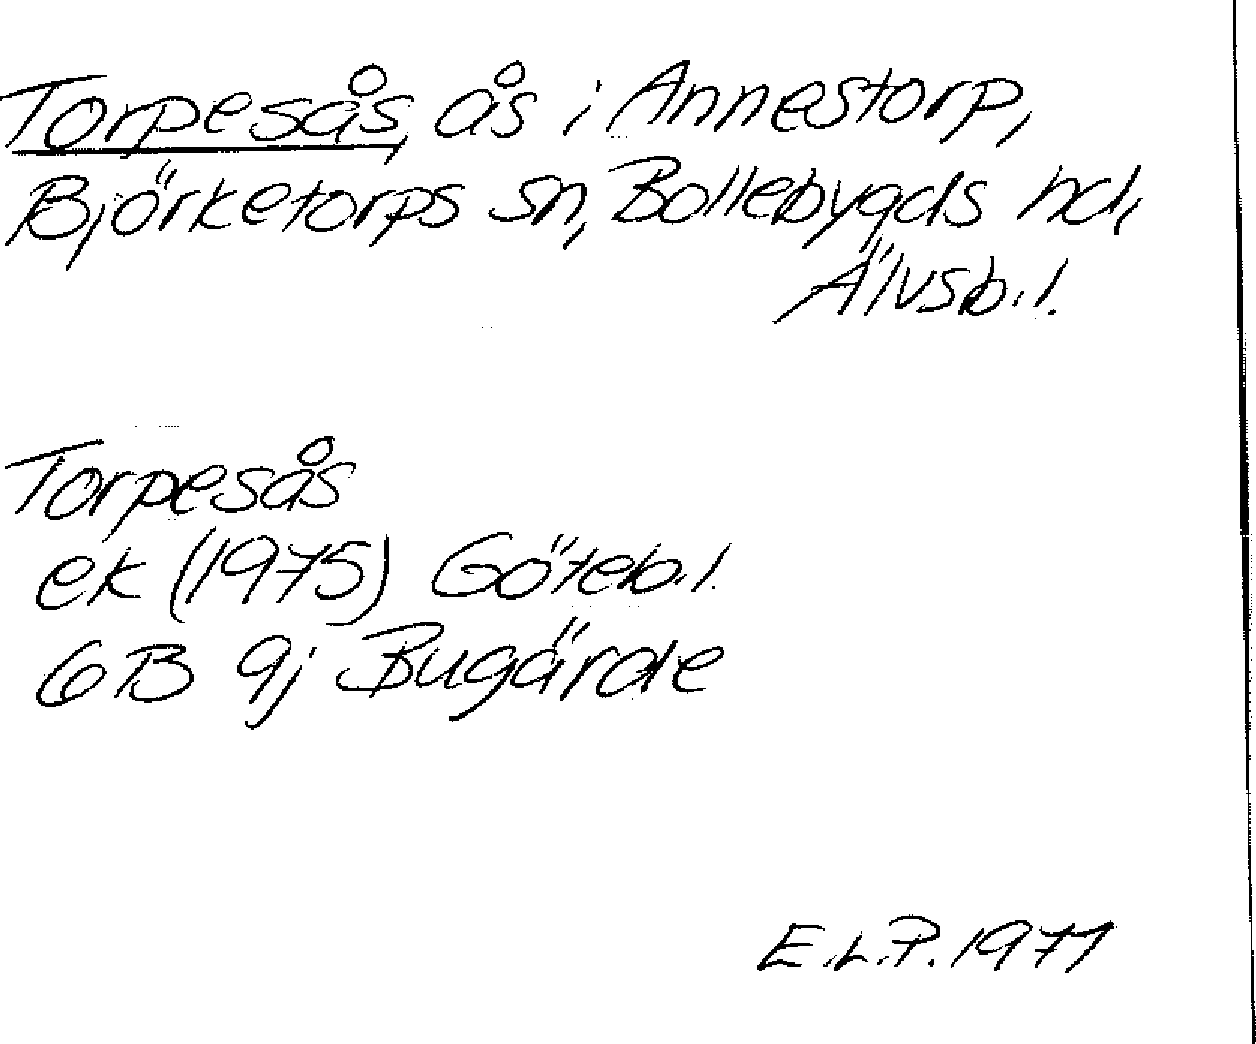 Torpesås, ås i Annestorp,
Björketorps sn, Bollebygds hd,
Älvsb.l.
Torpesås
ek (1975) Göteb.l.
6B 9j Bugärde
E.L.P. 1977